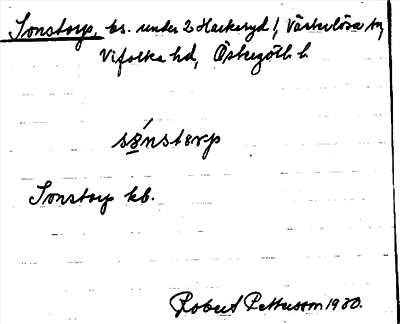 Sonstorp, bs. under 2 Hackeryd /, Västerlösa sn,
Vifolka hd, Östergötl. l.
sónstorp
Sonstorp kb.
Robert Pettersson 1930.